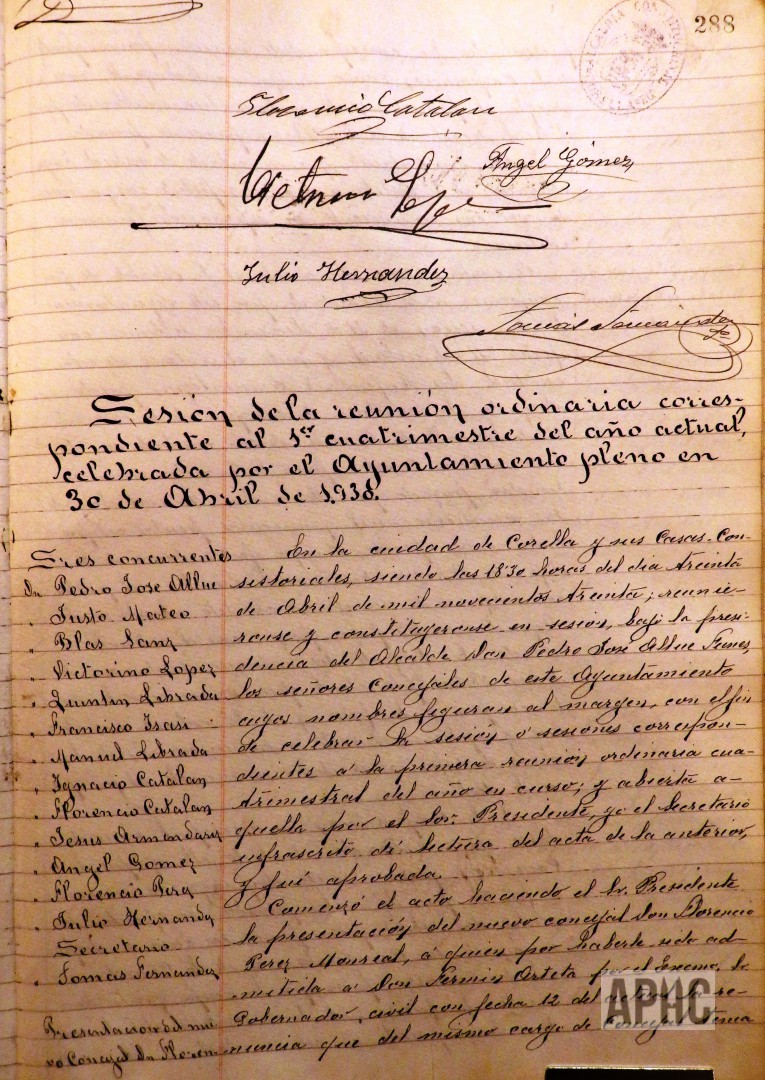 288
Florencio Catalan
Angel Gómez
Julio Hernandez
Sesión de la reunión ordinaria corres-
pondiente al 1er cuatrimestre del año actual,
celebrada por el Ayuntamiento pleno en
30 de Abril de 1.930.
Sres concurrentes
Dn Pedro José Allue
" Justo Mateo
" Blas Sanz
" Victorino Lopez
" Quintin Librada
" Francisco Isasi
" Manuel Librada
" Ignacio Catalan
" Florencio Catalan
" Jesus Armendariz
" Angel Gomez
" Florencio Perez
" Julio Hernandez
Secretario
" Tomas Fernandez
Presentacion del nue-
vo Concejal Dn Floren-
En la ciudad de Corella y sus Casas-Con-
sistoriales, siendo las 18'30 horas del dia treinta
de Abril de mil novecientos treinta; reunie-
ronse y constituyeronse en sesión, bajo la presi-
dencia del Alcalde Don Pedro José Allue
los señores Concejales de este Ayuntamiento
cuyos nombres figuran al margen, con el fin
de celebrar la sesión ó sesiones correspon-
dientes á la primera reunión ordinaria cua-
trimestral del año en curso; y abierta a-
quella por el Sor. Presidente, yo el Secretario
infrascrito dí lectura del acta de la anterior,
y fué aprobada.
Comenzó el acto haciendo el Sr. Presidente
la presentación del nuevo concejal Don Florencio
Perez Monreal, á quien por haberle sido ad-
mitida á Don Fermin Orteta por el Excmo. Sr.
Gobernador civil con fecha 12 del actual la re-
nuncia que del mismo cargo de concejal tenia
APHC